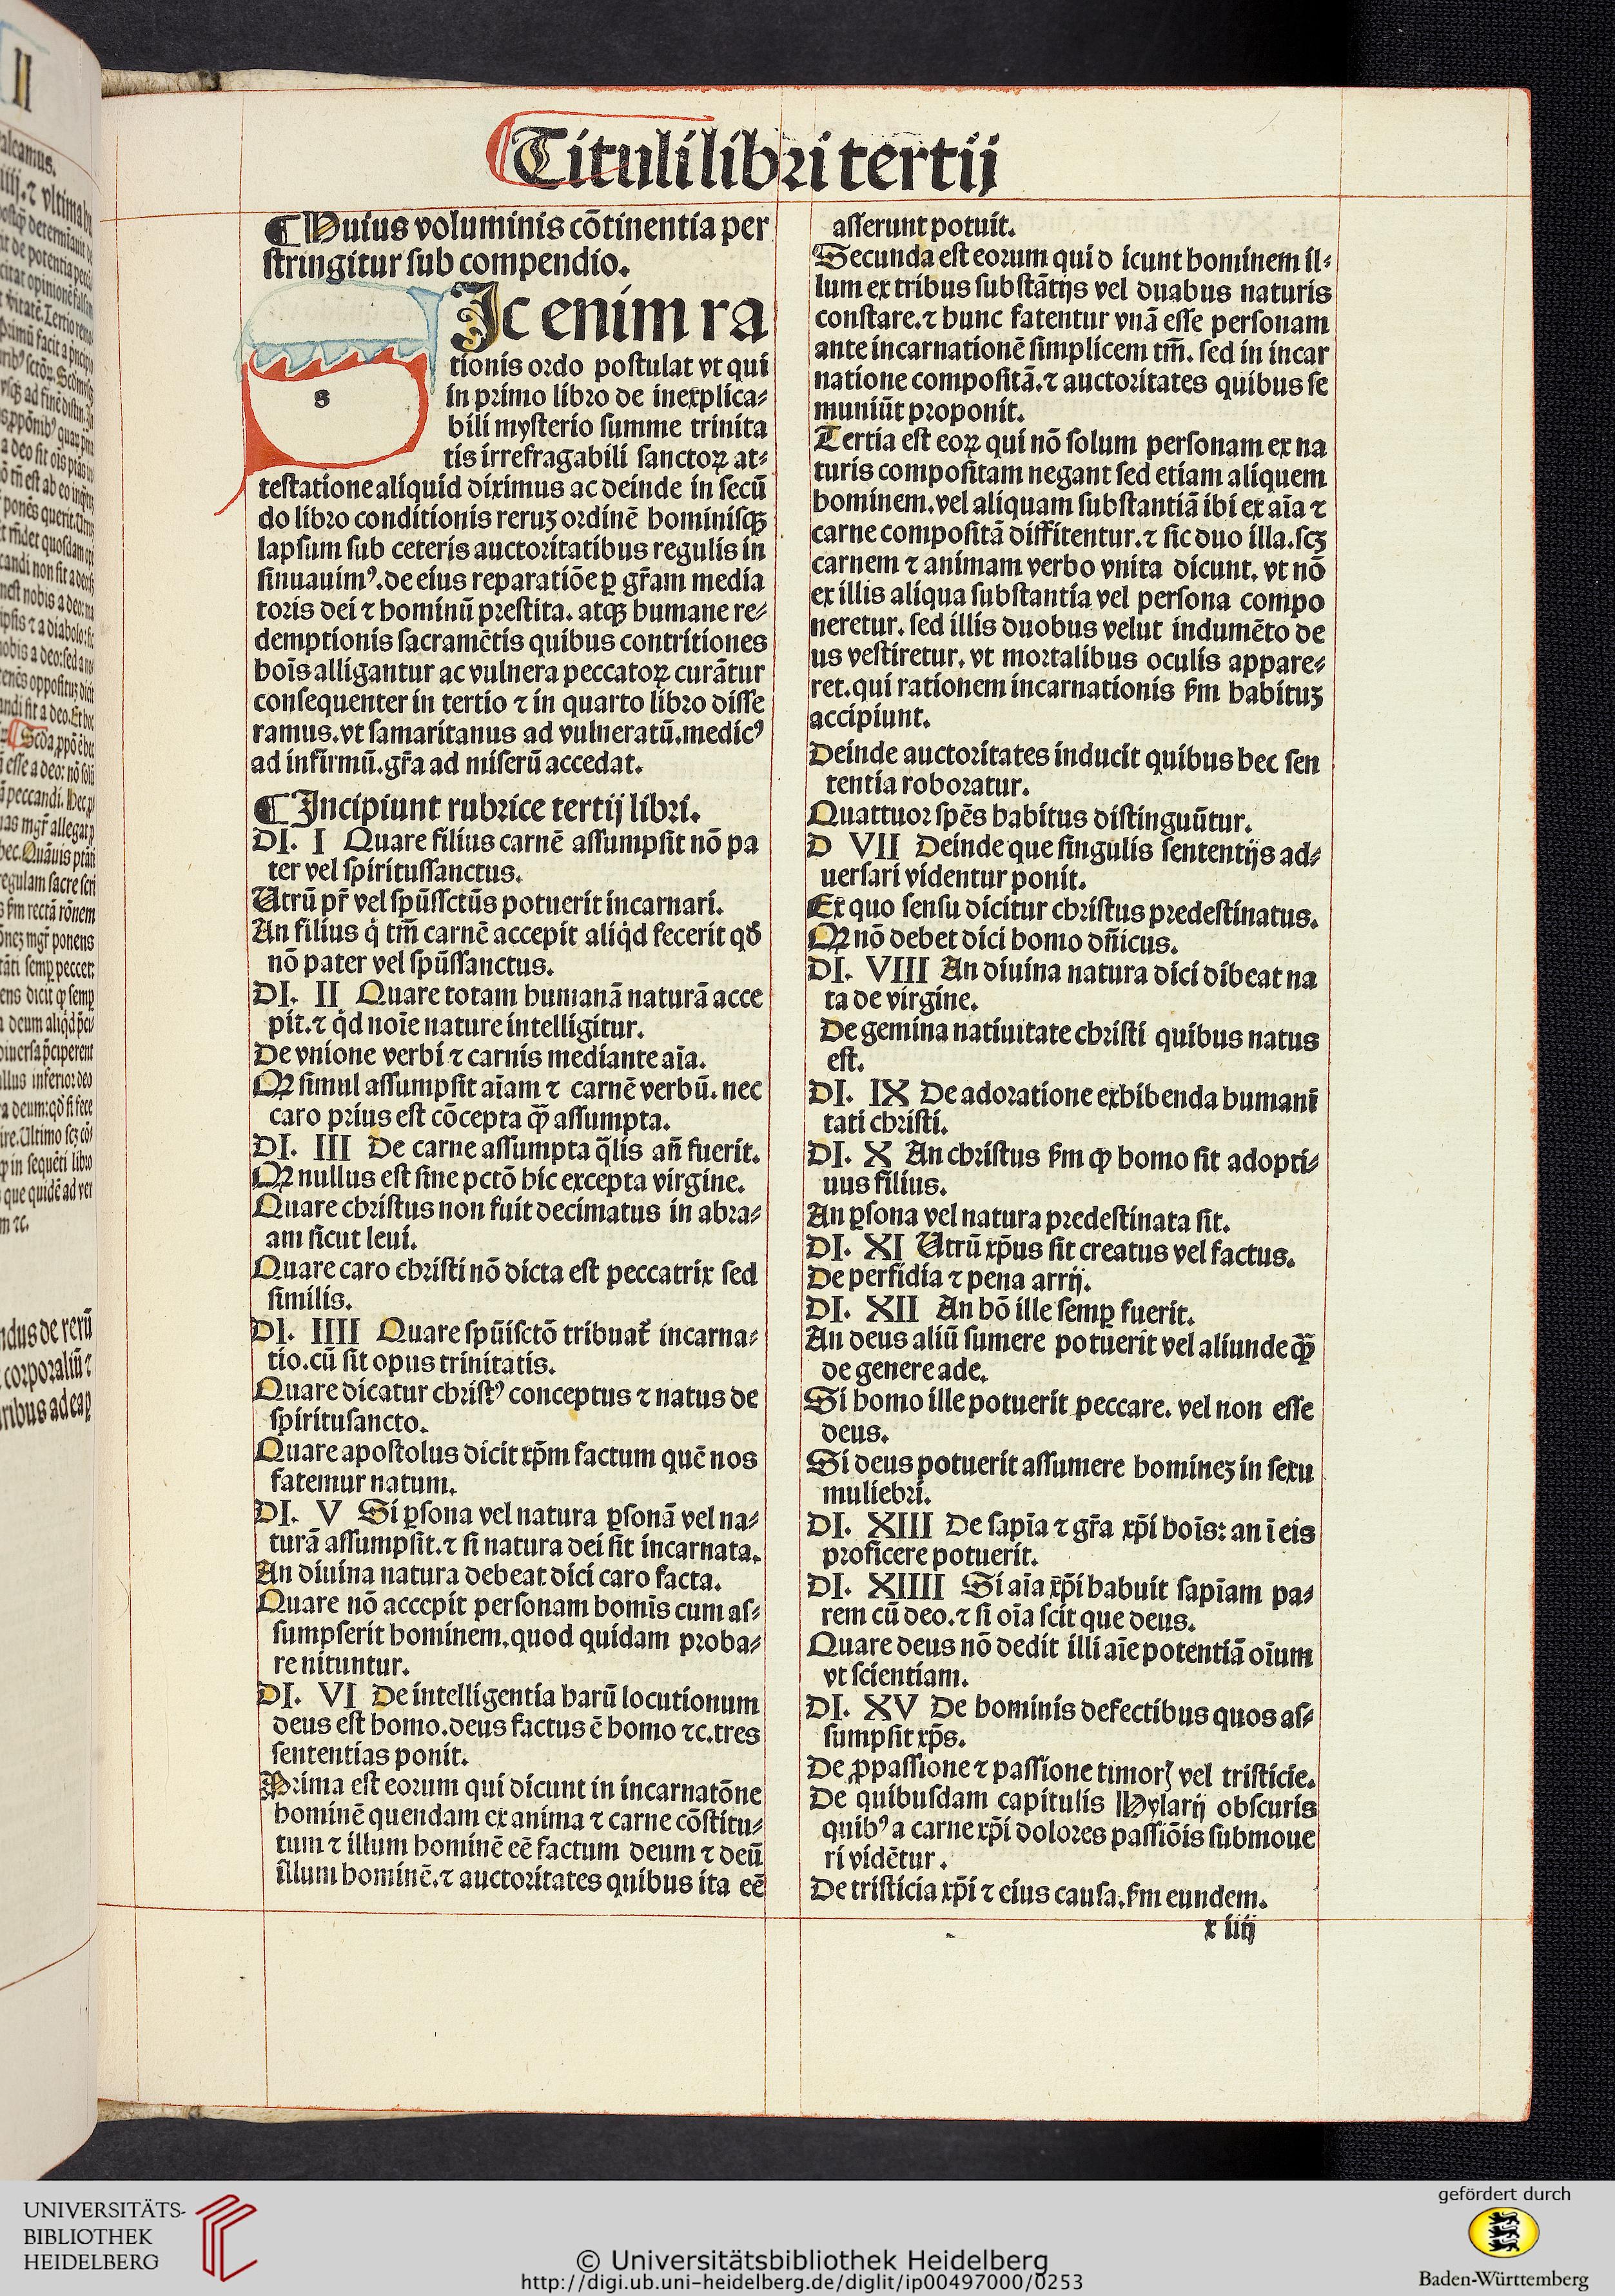 Tituli libri tertij
¶ Huius voluminis cōtinentia per
stringitur sub compendio.
s
Ic enim ra
tionis ordo postulat vt qui
in primo libro de inexplica⸗
bili mysterio summe trinita
tis irrefragabili sanctoꝝ at⸗
testatione aliquid diximus ac deinde in secū
do libro conditionis reruꝫ ordinē hominisqꝫ
lapsum sub ceteris auctoritatibus regulis in
sinuauimꝰ. de eius reparatiōe ꝑ gr̄am media
toris dei ⁊ hominū prestita. atqꝫ humane re⸗
demptionis sacramētis quibus contritiones
hoīs alligantur ac vulnera peccatoꝝ curātur
consequenter in tertio ⁊ in quarto libro disse
ramus. vt samaritanus ad vulneratū. medicꝰ
ad infirmū. gr̄a ad miserū accedat.
¶ Incipiunt rubrice tertij libri.
DI. I Quare filius carnē assumpsit nō pa
ter vel spiritussanctus.
Utrū pr̄ vel spūssctūs potuerit incarnari.
An filius q̇ tm̄ carnē accepit aliq̇d fecerit qḋ
nō pater vel spūssanctus.
DI. II Quare totam humanā naturā acce
pit. ⁊ q̇d noīe nature intelligitur.
De vnione verbi ⁊ carnis mediante aīa.
Qꝛ simul assumpsit aīam ⁊ carnē verbū. nec
caro prius est cōcepta qꝫ̄ assumpta.
DI. III De carne assumpta q̄lis añ fuerit.
Qꝛ nullus est sine pctō hic excepta virgine.
Quare christus non fuit decimatus in abra⸗
am sicut leui.
Quare caro christi nō dicta est peccatrix sed
similis.
DI. IIII Quare spūisctō tribuat̄ incarna⸗
tio. cū sit opus trinitatis.
Quare dicatur christꝰ conceptus ⁊ natus de
spiritusancto.
Quare apostolus dicit xp̄m factum quē nos
fatemur natum.
DI. V Si ꝑsona vel natura ꝑsonā vel na⸗
turā assumpsit. ⁊ si natura dei sit incarnata.
An diuina natura debeat dici caro facta.
Quare nō accepit personam homīs cum as⸗
sumpserit hominem. quod quidam proba⸗
re nituntur.
DI. VI De intelligentia harū locutionum
deus est homo. deus factus ē homo ⁊c. tres
sententias ponit.
Prima est eorum qui dicunt in incarnatōne
hominē quendam ex anima ⁊ carne cōstitu⸗
tum ⁊ illum hominē eē factum deum ⁊ deū
illum hominē. ⁊ auctoritates quibus ita eē
asserunt potuit.
Secunda est eorum qui d icunt hominem il⸗
lum ex tribus substātijs vel duabus naturis
constare. ⁊ hunc fatentur vnā esse personam
ante incarnationē simplicem tm̄. sed in incar
natione compositā. ⁊ auctoritates quibus se
muniūt proponit.
Tertia est eoꝝ qui nō solum personam ex na
turis compositam negant sed etiam aliquem
hominem. vel aliquam substantiā ibi ex aīa ⁊
carne compositā diffitentur. ⁊ sic duo illa. scꝫ
carnem ⁊ animam verbo vnita dicunt. vt nō
ex illis aliqua substantia vel persona compo
neretur. sed illis duobus velut indumēto de
us vestiretur. vt mortalibus oculis appare⸗
ret. qui rationem incarnationis ẜm habituꝫ
accipiunt.
Deinde auctoritates inducit quibus hec sen
tentia roboratur.
Quattuor spēs habitus distinguūtur.
D VII Deinde que singulis sententijs ad⸗
uersari videntur ponit.
Ex quo sensu dicitur christus predestinatus.
Qꝛ nō debet dici homo dn̄icus.
DI. VIII An diuina natura dici dibeat na
ta de virgine.
De gemina natiuitate christi quibus natus
est.
DI. IX De adoratione exhibenda humanī
tati christi.
DI. X An christus ẜm ꝙ homo sit adopti⸗
uus filius.
An ꝑsona vel natura predestinata sit.
DI. XI Utrū xp̄us sit creatus vel factus.
De perfidia ⁊ pena arrij.
DI. XII An hō ille semꝑ fuerit.
An deus aliū sumere potuerit vel aliunde qꝫ̄
de genere ade.
Si homo ille potuerit peccare. vel non esse
deus.
Si deus potuerit assumere homineꝫ in sexu
muliebri.
DI. XIII De sapīa ⁊ gr̄a xp̄i hoīs: an ī eis
proficere potuerit.
DI. XIIII Si aīa xp̄i habuit sapīam pa⸗
rem cū deo. ⁊ si oīa scit que deus.
Quare deus nō dedit illi aīe potentiā oīum
vt scientiam.
DI. XV De hominis defectibus quos as⸗
sumpsit xp̄s.
De ꝓpassione ⁊ passione timorꝭ vel tristicie.
De quibusdam capitulis Hylarij obscuris
quibꝰ a carne xp̄i dolores passiōis submoue
ri vidētur.
De tristicia xp̄i ⁊ eius causa. ẜm eundem.
x iiij
UNIVERSITÄTS-
BIBLIOTHEK
HEIDELBERG
© Universitätsbibliothek Heidelberg
http://digi.ub.uni-heidelberg.de/diglit/ip00497000/0253
gefördert durch
Baden-Württemberg